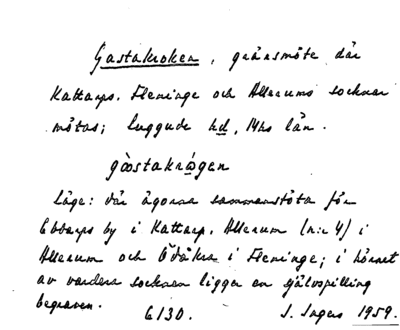 Gastakroken, gränsmöte där
Kattarps, Fleninge och Allerums socknar
mötas; Luggude hd, Mhs län.
gòstakrǻgen
Läge: där ägorna sammanstöta för
Ebbarps by i Kattarp, Allerum (n:r 4) i
Allerum och Ödåkra i Fleninge; i hörnet
av vardera socknen ligger en självspilling
begraven.
6130. S. Ingers 1959.